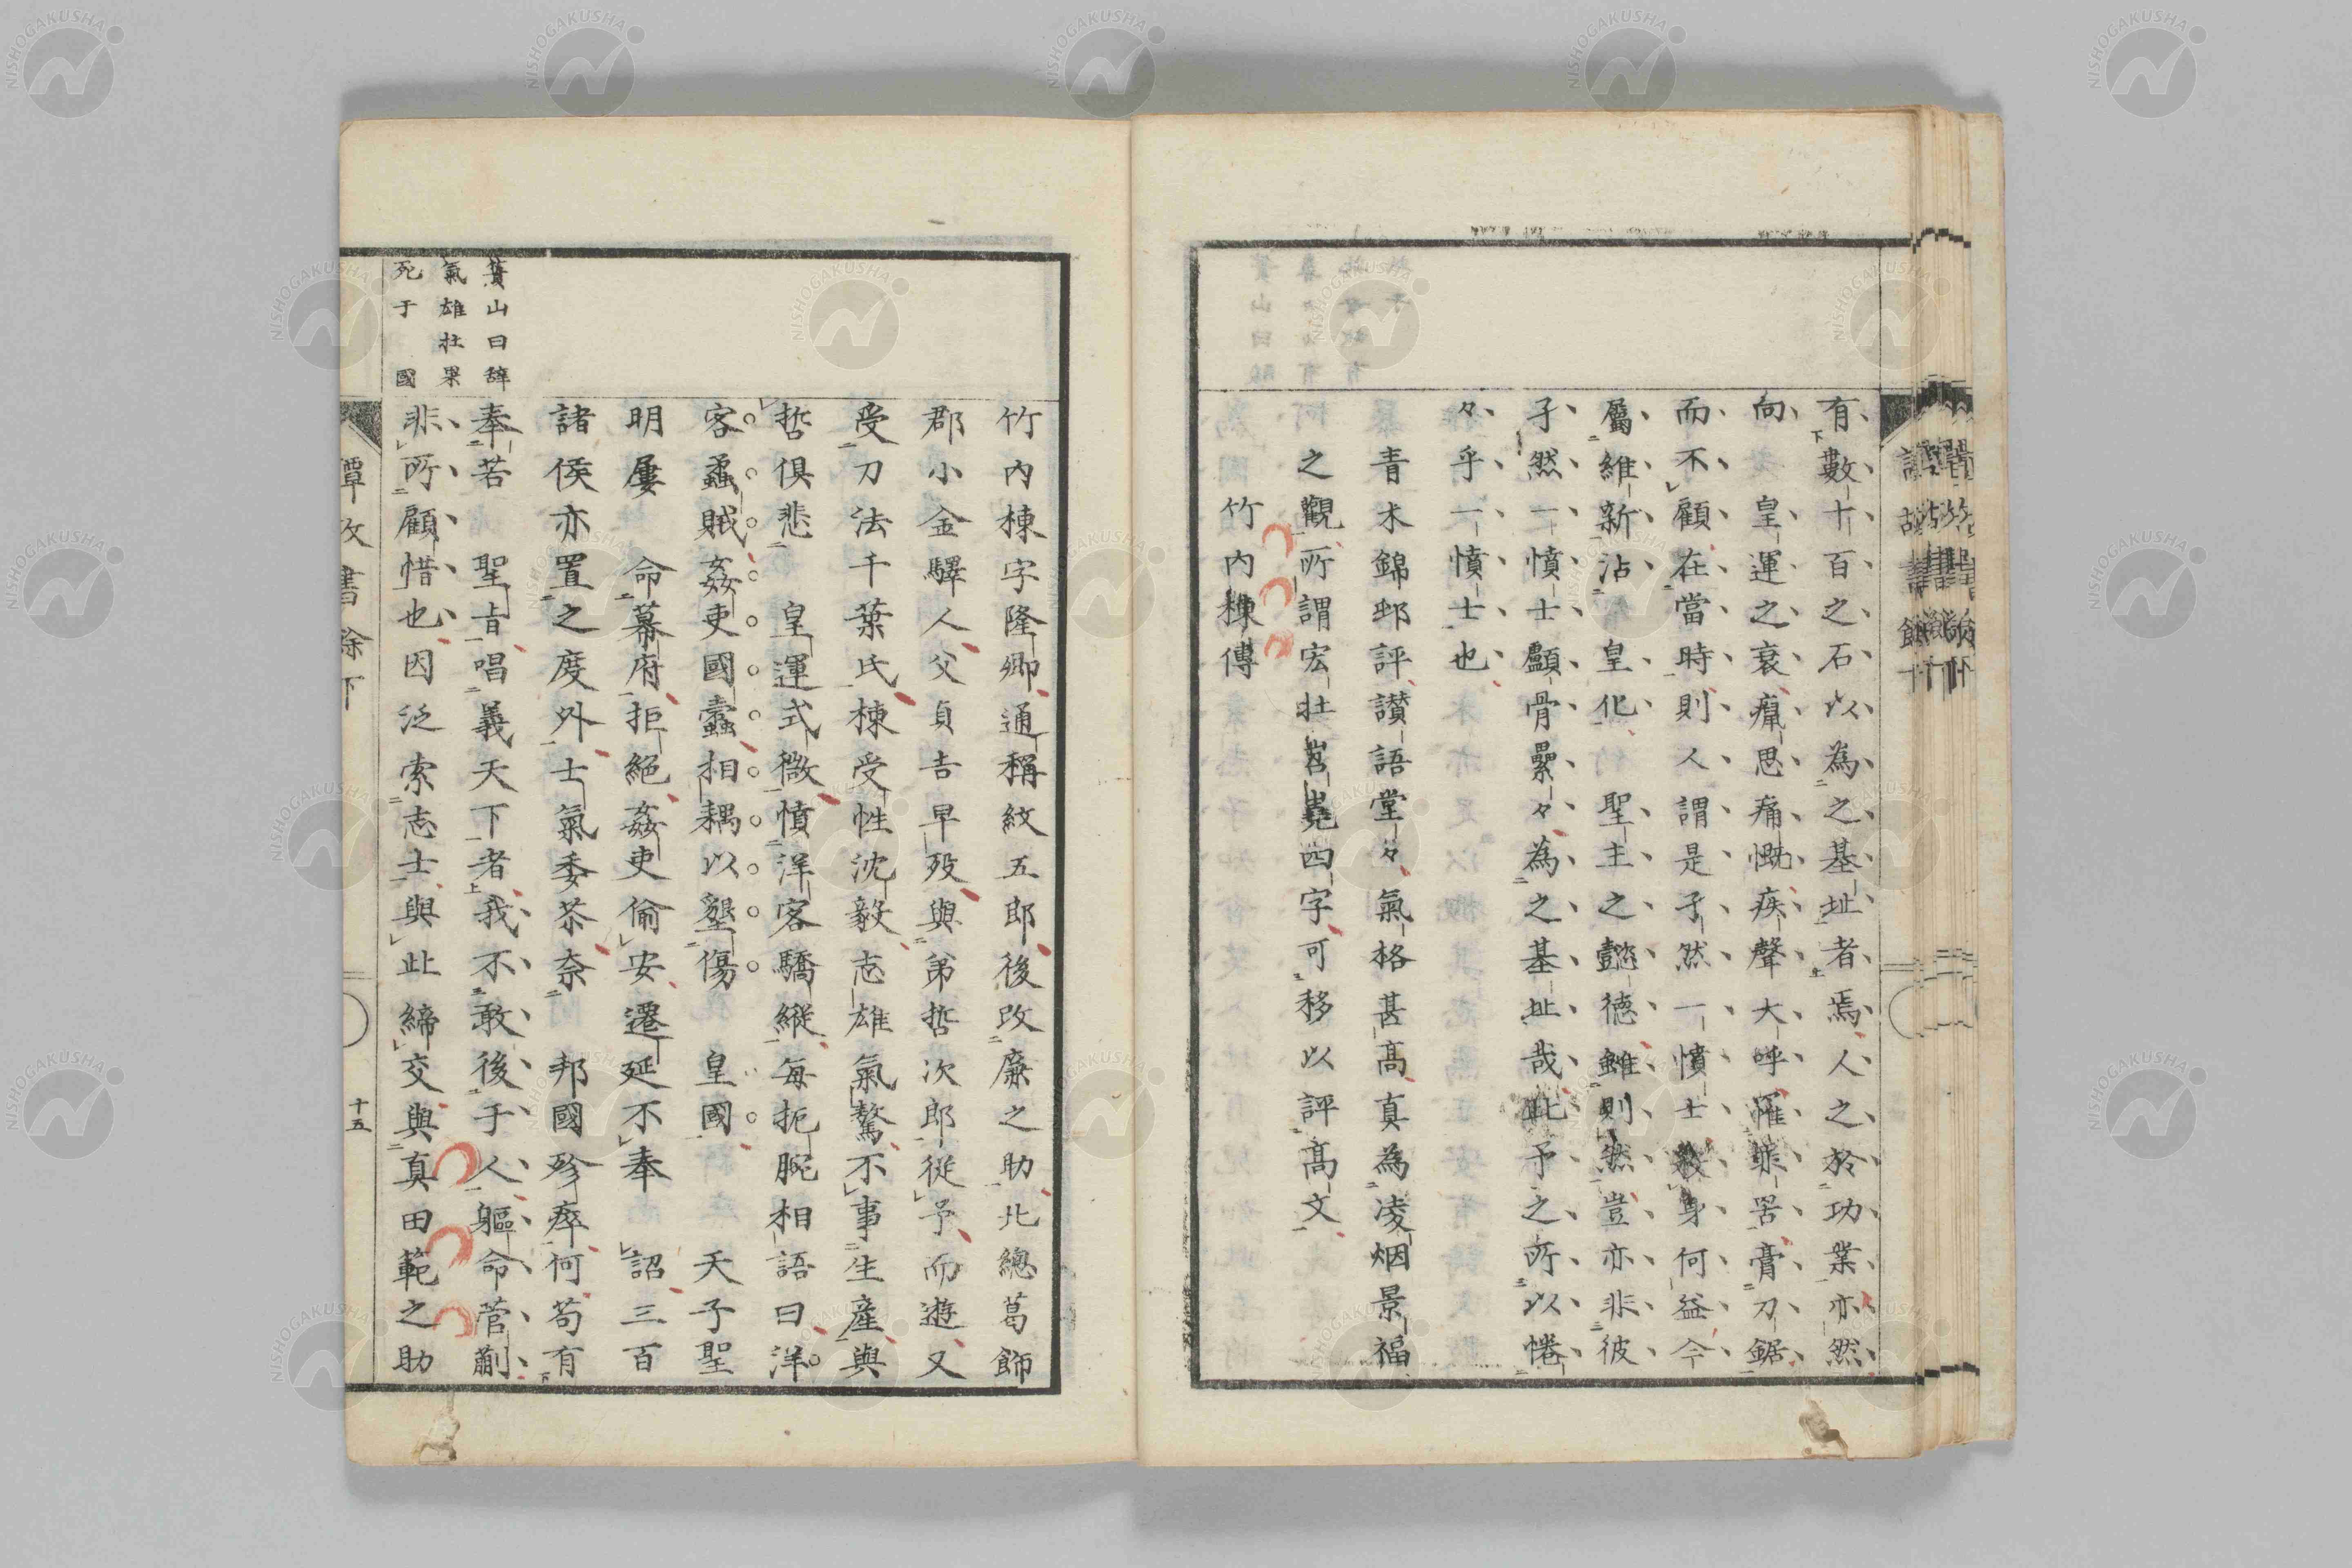 有數十百之石以為之基址者焉人之於功業亦然
向　皇運之衰癙思痛慨疾聲大呼罹罪罟膏刀鋸
而不顧在當時則人謂是孑然一憤士殺身何益今
屬維新沾　皇化　聖主之懿德雖則然豈亦非彼
孑然一憤士顱骨纍々為之基址哉此予之所以惓
々乎一憤士也
青木錦邨評讃語堂々氣格甚高真為凌烟景福
之觀所謂宏壯岧嶤四字可移以評高文
竹内棟傳
竹内棟字隆卿通稱紋五郎後改廉之助北總葛飾
郡小金驛人父貞吉早歿與弟哲次郎從予而遊又
受刀法千葉氏棟受性沈毅志雄氣驁不事生產與
哲俱悲　皇運式微憤洋客驕縱每扼腕相語曰洋
客蟊賊姦吏國蠹相耦以壑傷　皇國　天子聖
明屢　命幕府拒絕姦吏偷安遷延不奉　詔三百
諸侯亦置之度外士氣委苶奈　邦國殄瘁何苟有
奉若　聖旨唱義天下者我不敢後于人軀命菅蒯
非所顧惜也因泛索志士與此締交與真田範之助
簣山曰辞
氣雄壯果
死于　國
譚故書餘下
十五